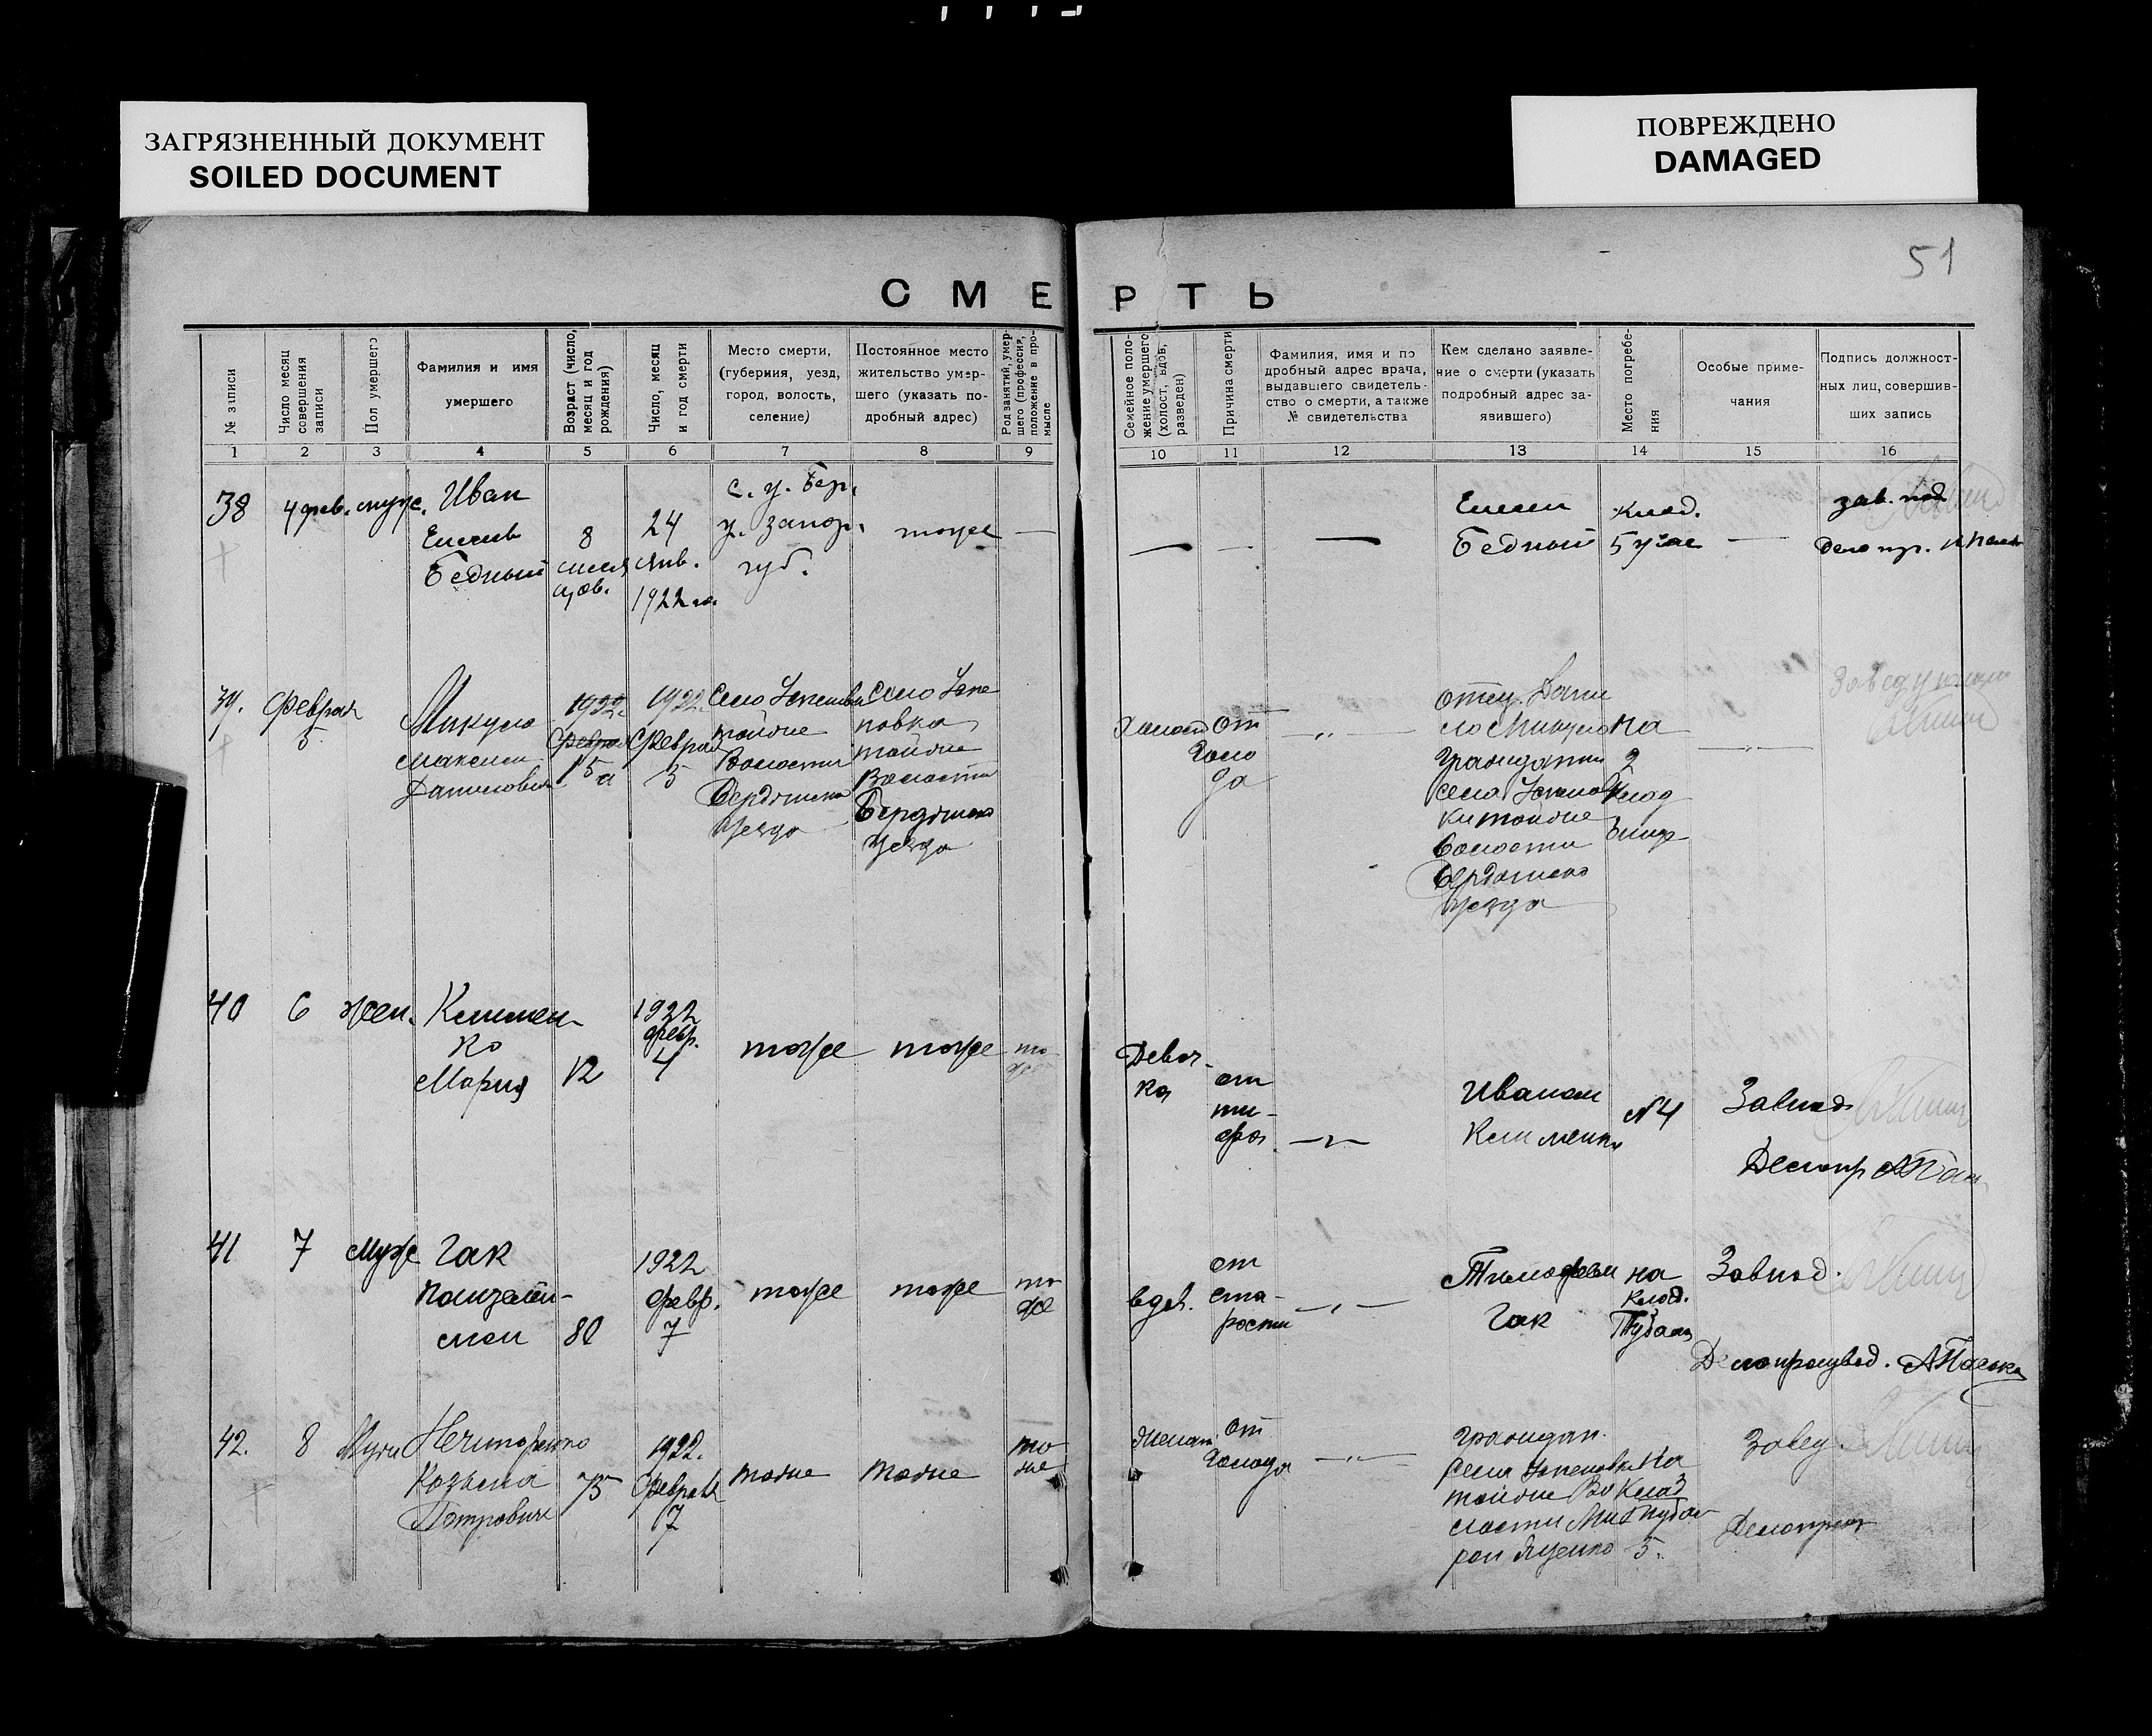 ЗАГРЯЗНЕННЫЙ ДОКУМЕНТ
SOILED DOCUMENT
ПОВРЕЖДЕНО
DAMAGED
51
СМЕРТЬ
№ записи
Число месяц совершения записи
Пол умершего
Фамилия и имя
умершего
Возраст (число, месяц и год рождения)
Число, месяц и год смерти
Место смерти,
(губерния, уезд,
город, волость,
селение)
Постоянное место
жительство умер-
шего (указать по-
дробный адрес)
Род занятий, умер-
шего (профессия,
положение в про-
мысле
Семейное поло-
жение умершего
(холост, вдов,
разведен)
Причина смерти
Фамилия, имя и по
дробный адрес врача,
выдавшего свидетель-
ство о смерти, а также
№ свидетельства
Кем сделано заявле-
ние о смерти (указать
подробный адрес за-
явившего)
Место погребе-
ния
Особые приме-
чания
Подпись должност-
ных лиц, совершив-
ших запись
1 2 3 4 5 6 7 8 9 10 11 12 13 14 15 16
38
4 фев.
муж.
Иван
Бедный
8
меся
цов.
24
янв.
1922 го.
с. у. Бер.
у. запор.
губ.
тоже
—
—
—
—
Бедный
клад.
5 учас
—
зав. под
Дело пр.
39.
Февраля
5
Микула
Максим
Данилович
1922.
Февраля
15
1922.
Февраля
5
Село
Волости
Бердянско
Уезда
Село Успе
новка
Волости
Бердянско
Уезда
Холост
От
Голо
да
—„—
отец. Дани
ло Микула
Гражданин
села
волости
Бердянско
уезда
На
2
Клад
бище
—„—
Заведующий
40
6
жен.
Климен-
ко
Мария
12
1922
февр.
4
тоже
тоже
то
же
Девоч-
ка
от
ти-
фа
—„—
Иваном
Клименко
№4
Завпод
Делопр
41
7
Муж
Гак
80
1922
февр.
7
тоже
тоже
то
же
вдов.
от
ста-
рости
—„—
Тимофеем
Гак
на
клад.
Завпод.
Делопроизвод.
42.
8
Муж
Нечипоренко
Козьма
Петрович
75
1922.
Февраля
7
тоже
тоже
то
же
Женат
От
Голода
—„—
Граждан.
Села
рон Яценко
На
Клад
5.
Завед.